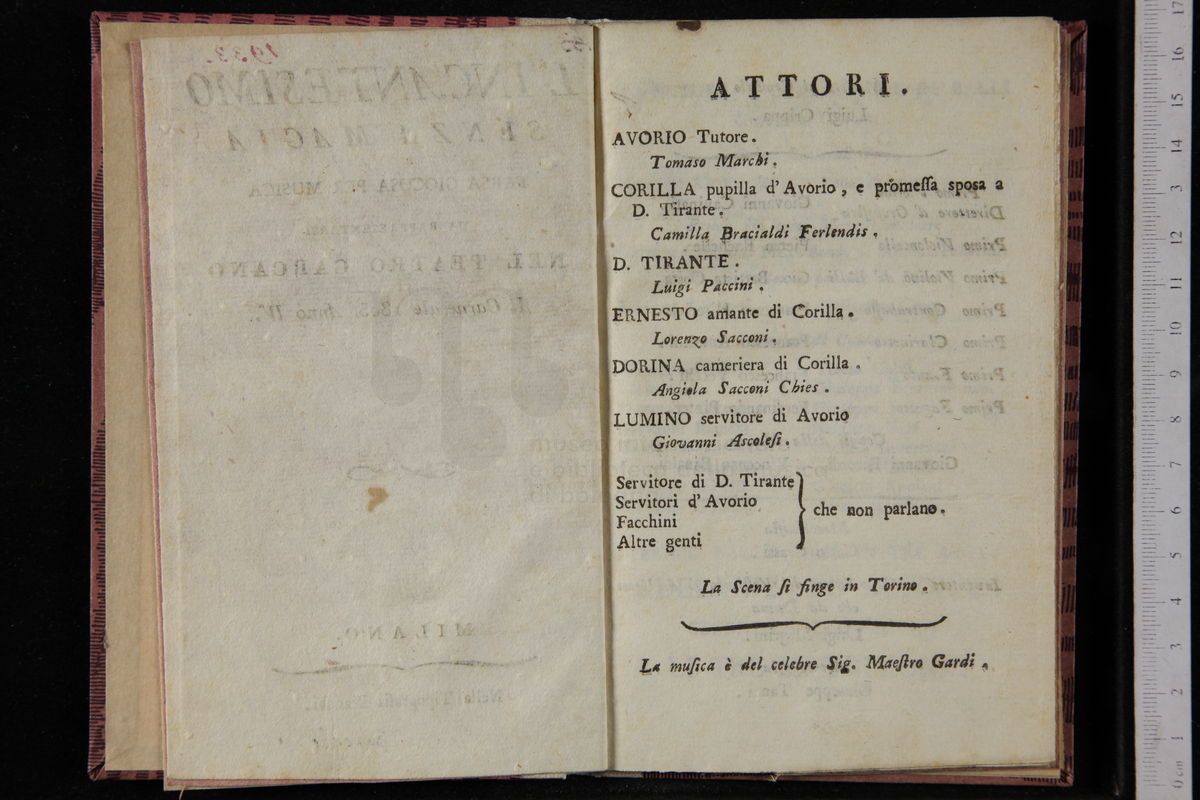 ATTORI.
AVORIO Tutore.
Tomaso Marchi.
CORILLA pupilla d'Avorio, e promeſſa sposa a
D. Tirante.
Camilla Bracialdi Ferlendis.
D. TIRANTE.
Luigi Paccini.
ERNESTO amante di Corilla.
Lorenzo Sacconi.
DORINA cameriera di Corilla.
Angiola Sacconi Chies.
LUMINO servitore di Avorio
Giovanni Ascoleſi.
Servitore di D. Tirante
Servitori d'Avorio
Facchini
Altre genti
che non parlano.
La Scena ſi finge in Torino.
La muſica è del celebre Sig. Maeſtro Gardi.